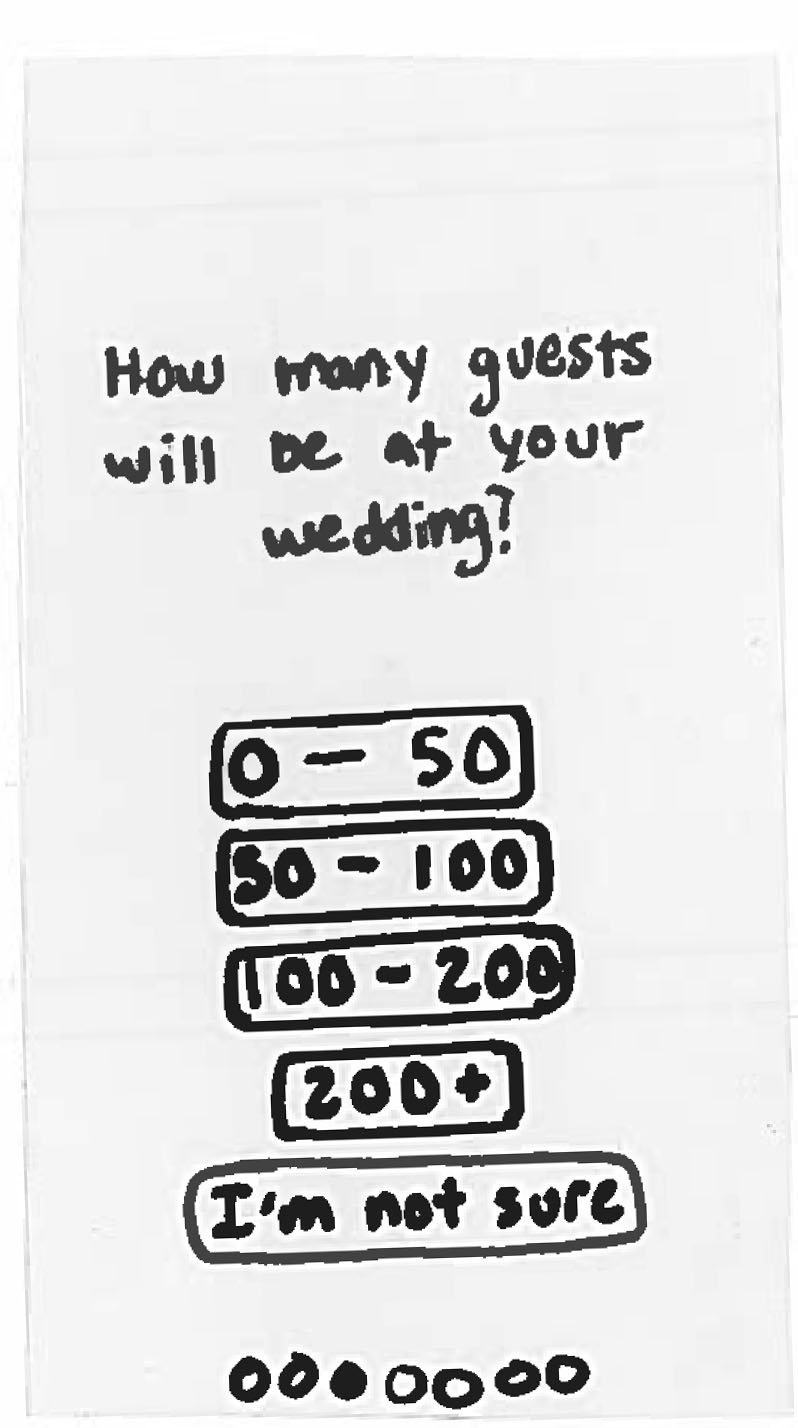 How many guests
will be at your
wedding?
0 - 50
50 - 100
100 - 200
200+
I'm not sure